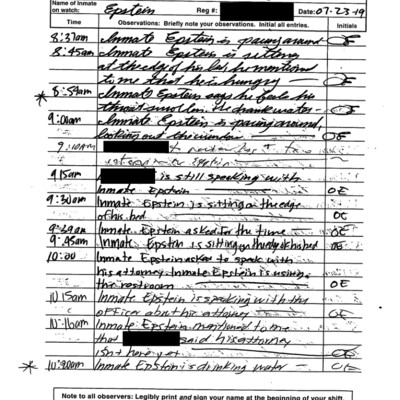 Name of Inmate
on watch: Epstein Reg #: Date: 07-23-19
Time Observations: Briefly note your observations. Initial all entries. Initials
8:37am Inmate Epstein is pacing around OE
8:45am Inmate Epstein is sitting
at the edge of his bed he mentioned
to me that he is hungry OE
* 8:59am Inmate Epstein says he feels his
throat swollen. drank water - OE
9:00am Inmate Epstein is pacing around,
looking out the window OE
9:10AM
Epstein
9:15am is still speaking with
Inmate Epstein OE
9:30am Inmate Epstein is sitting on the edge
of his bed OE
9:39am Inmate Epstein asked for the time OE
9:45am Inmate Epstein is sitting on the edge of his bed OE
10:00 Inmate Epstein asked to speak with
his attorney. Inmate Epstein is using
the restroom OE
10:15am Inmate Epstein is speaking with the
officer about his attorney OE
10:16am Inmate Epstein mentioned to me
that said his attorney
isn't here yet OE
* 10:20am Inmate Epstein is drinking water - OE
Note to all observers: Legibly print and sign your name at the beginning of your shift.